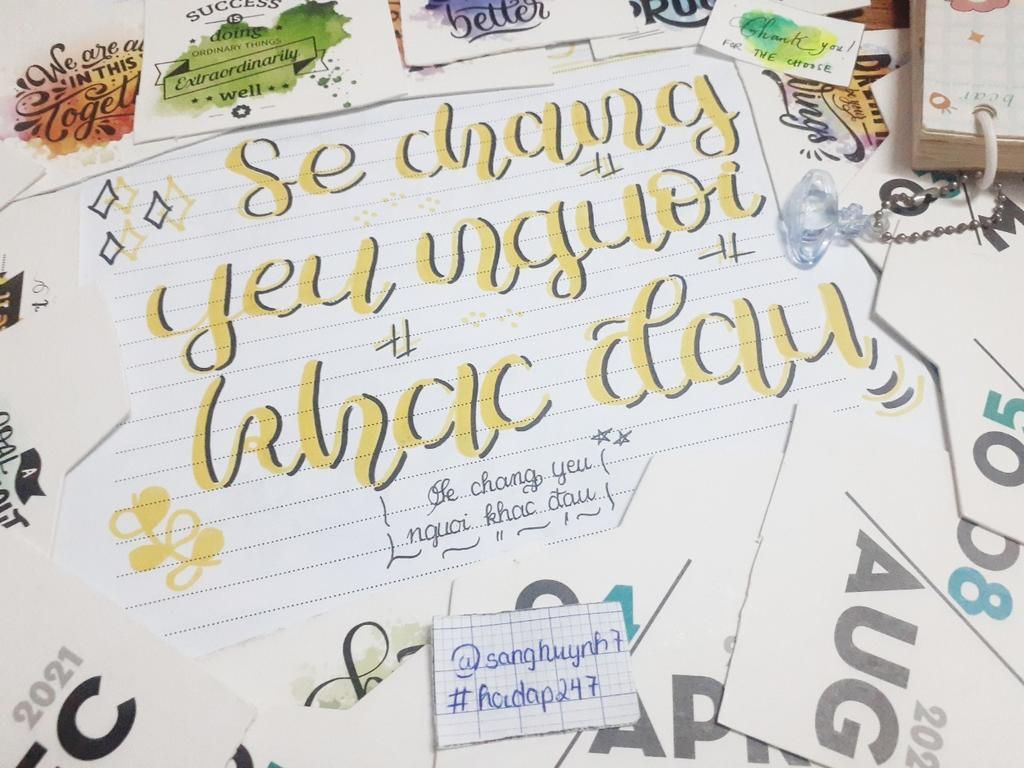 We are all
IN THIS
Together
SUCCESS
IS
doing
ORDINARY THINGS
Extraordinarily
well
better
Thank you!
FOR THE CHOOSE
things
bear
Se chang
yeu nguoi
khac đau
Se chang yeu
nguoi khac đau
A
05
08
AUG
202
APR
2021
EC
@sanghuynh7
#hoidap247